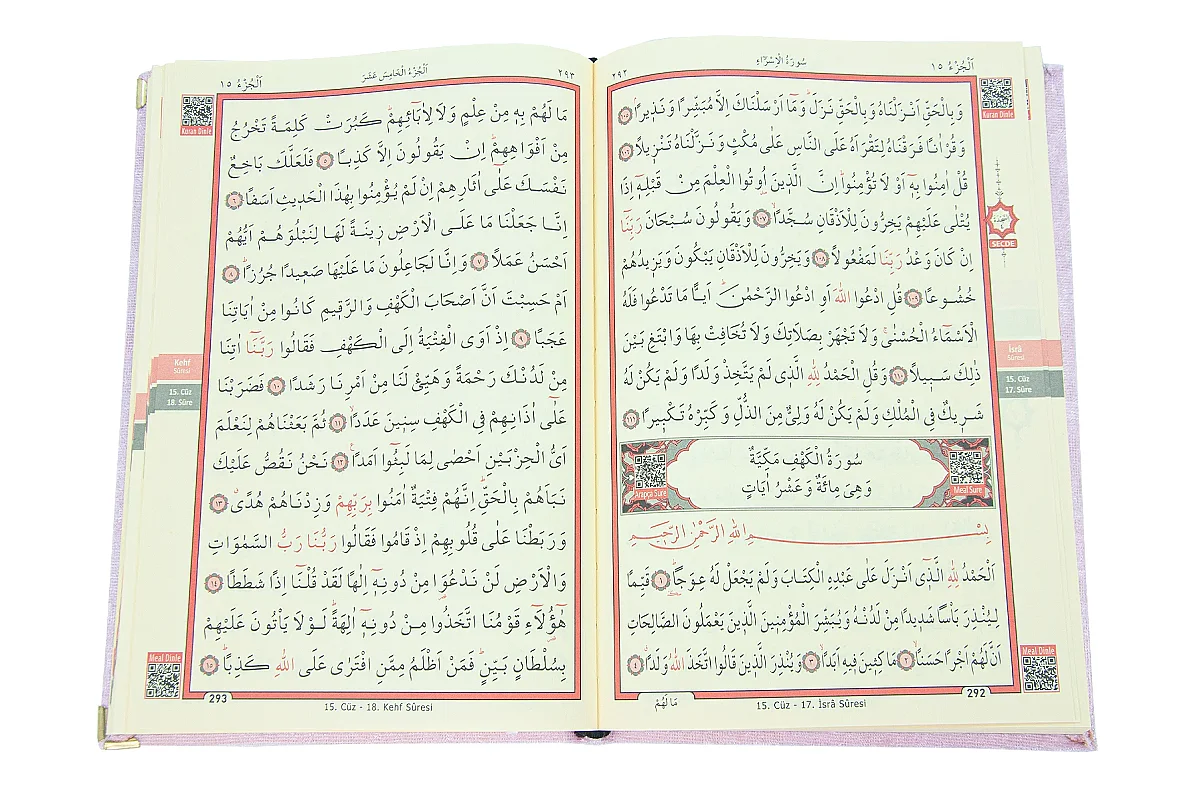 اَلْجُزْءُ ١٥
سُورَةُ الْاِسْرَاءِ
٢٩٢
Kuran Dinle
وَبِالْحَقِّ اَنْزَلْنَاهُ وَبِالْحَقِّ نَزَلَۜ وَمَٓا اَرْسَلْنَاكَ اِلَّا مُبَشِّرًا وَنَذِيرًاۢ ﴿١٠٥﴾
وَقُرْاٰنًا فَرَقْنَاهُ لِتَقْرَاَهُ عَلَى النَّاسِ عَلٰى مُكْثٍ وَنَزَّلْنَاهُ تَنْزِيلًا ﴿١٠٦﴾
قُلْ اٰمِنُوا بِهِٓ اَوْ لَا تُؤْمِنُواۜ اِنَّ الَّذِينَ اُو۫تُوا الْعِلْمَ مِنْ قَبْلِهِٓ اِذَا
يُتْلٰى عَلَيْهِمْ يَخِرُّونَ لِلْاَذْقَانِ سُجَّدًاۙ ﴿١٠٧﴾ وَيَقُولُونَ سُبْحَانَ رَبِّنَٓا
اِنْ كَانَ وَعْدُ رَبِّنَا لَمَفْعُولًا ﴿١٠٨﴾ وَيَخِرُّونَ لِلْاَذْقَانِ يَبْكُونَ وَيَزِيدُهُمْ
خُشُوعًا ﴿١٠٩﴾ قُلِ ادْعُوا اللّٰهَ اَوِ ادْعُوا الرَّحْمٰنَۜ اَيًّا مَا تَدْعُوا فَلَهُ
الْاَسْمَٓاءُ الْحُسْنٰىۚ وَلَا تَجْهَرْ بِصَلَاتِكَ وَلَا تُخَافِتْ بِهَا وَابْتَغِ بَيْنَ
ذٰلِكَ سَبِيلًا ﴿١١٠﴾ وَقُلِ الْحَمْدُ لِلّٰهِ الَّذِي لَمْ يَتَّخِذْ وَلَدًا وَلَمْ يَكُنْ لَهُ
شَرِيكٌ فِي الْمُلْكِ وَلَمْ يَكُنْ لَهُ وَلِيٌّ مِنَ الذُّلِّ وَكَبِّرْهُ تَكْبِيرًا ﴿١١١﴾
سُورَةُ الْكَهْفِ مَكِّيَّةٌ
وَهِيَ مِائَةٌ وَعَشْرُ اٰيَاتٍ
Arapça Sure
Meal Sure
بِسْمِ اللّٰهِ الرَّحْمٰنِ الرَّحِيمِ
اَلْحَمْدُ لِلّٰهِ الَّذِٓي اَنْزَلَ عَلٰى عَبْدِهِ الْكِتَابَ وَلَمْ يَجْعَلْ لَهُ عِوَجًاۜ ﴿١﴾ قَيِّمًا
لِيُنْذِرَ بَأْسًا شَدِيدًا مِنْ لَدُنْهُ وَيُبَشِّرَ الْمُؤْمِنِينَ الَّذِينَ يَعْمَلُونَ الصَّالِحَاتِ
اَنَّ لَهُمْ اَجْرًا حَسَنًاۙ ﴿٢﴾ مَاكِثِينَ فِيهِ اَبَدًاۙ ﴿٣﴾ وَيُنْذِرَ الَّذِينَ قَالُوا اتَّخَذَ اللّٰهُ وَلَدًاۗ ﴿٤﴾
Meal Dinle
SECDE
İsrâ
Sûresi
15. Cüz
17. Sûre
292
15. Cüz - 17. İsrâ Sûresi
مَا لَهُمْ
٢٩٣
اَلْجُزْءُ الْخَامِسَ عَشَرَ
اَلْجُزْءُ ١٥
Kuran Dinle
مَا لَهُمْ بِهِ مِنْ عِلْمٍ وَلَا لِاٰبَٓائِهِمْۜ كَبُرَتْ كَلِمَةً تَخْرُجُ
مِنْ اَفْوَاهِهِمْۜ اِنْ يَقُولُونَ اِلَّا كَذِبًا ﴿٥﴾ فَلَعَلَّكَ بَاخِعٌ
نَفْسَكَ عَلٰٓى اٰثَارِهِمْ اِنْ لَمْ يُؤْمِنُوا بِهٰذَا الْحَدِيثِ اَسَفًا ﴿٦﴾
اِنَّا جَعَلْنَا مَا عَلَى الْاَرْضِ زِينَةً لَهَا لِنَبْلُوَهُمْ اَيُّهُمْ
اَحْسَنُ عَمَلًا ﴿٧﴾ وَاِنَّا لَجَاعِلُونَ مَا عَلَيْهَا صَعِيدًا جُرُزًاۜ ﴿٨﴾
اَمْ حَسِبْتَ اَنَّ اَصْحَابَ الْكَهْفِ وَالرَّقِيمِ كَانُوا مِنْ اٰيَاتِنَا
عَجَبًا ﴿٩﴾ اِذْ اَوَى الْفِتْيَةُ اِلَى الْكَهْفِ فَقَالُوا رَبَّنَٓا اٰتِنَا
مِنْ لَدُنْكَ رَحْمَةً وَهَيِّئْ لَنَا مِنْ اَمْرِنَا رَشَدًا ﴿١٠﴾ فَضَرَبْنَا
عَلٰٓى اٰذَانِهِمْ فِي الْكَهْفِ سِنِينَ عَدَدًاۙ ﴿١١﴾ ثُمَّ بَعَثْنَاهُمْ لِنَعْلَمَ
اَيُّ الْحِزْبَيْنِ اَحْصٰى لِمَا لَبِثُٓوا اَمَدًا۟ ﴿١٢﴾ نَحْنُ نَقُصُّ عَلَيْكَ
نَبَاَهُمْ بِالْحَقِّۜ اِنَّهُمْ فِتْيَةٌ اٰمَنُوا بِرَبِّهِمْ وَزِدْنَاهُمْ هُدًىۗ ﴿١٣﴾
وَرَبَطْنَا عَلٰى قُلُوبِهِمْ اِذْ قَامُوا فَقَالُوا رَبُّنَا رَبُّ السَّمٰوَاتِ
وَالْاَرْضِ لَنْ نَدْعُوَ۬ا مِنْ دُونِهِٓ اِلٰهًا لَقَدْ قُلْنَٓا اِذًا شَطَطًا ﴿١٤﴾
هٰٓؤُ۬لَٓاءِ قَوْمُنَا اتَّخَذُوا مِنْ دُونِهِٓ اٰلِهَةًۜ لَوْلَا يَأْتُونَ عَلَيْهِمْ
بِسُلْطَانٍ بَيِّنٍۜ فَمَنْ اَظْلَمُ مِمَّنِ افْتَرٰى عَلَى اللّٰهِ كَذِبًاۜ ﴿١٥﴾
Kehf
Sûresi
15. Cüz
18. Sûre
Meal Dinle
293
15. Cüz - 18. Kehf Sûresi